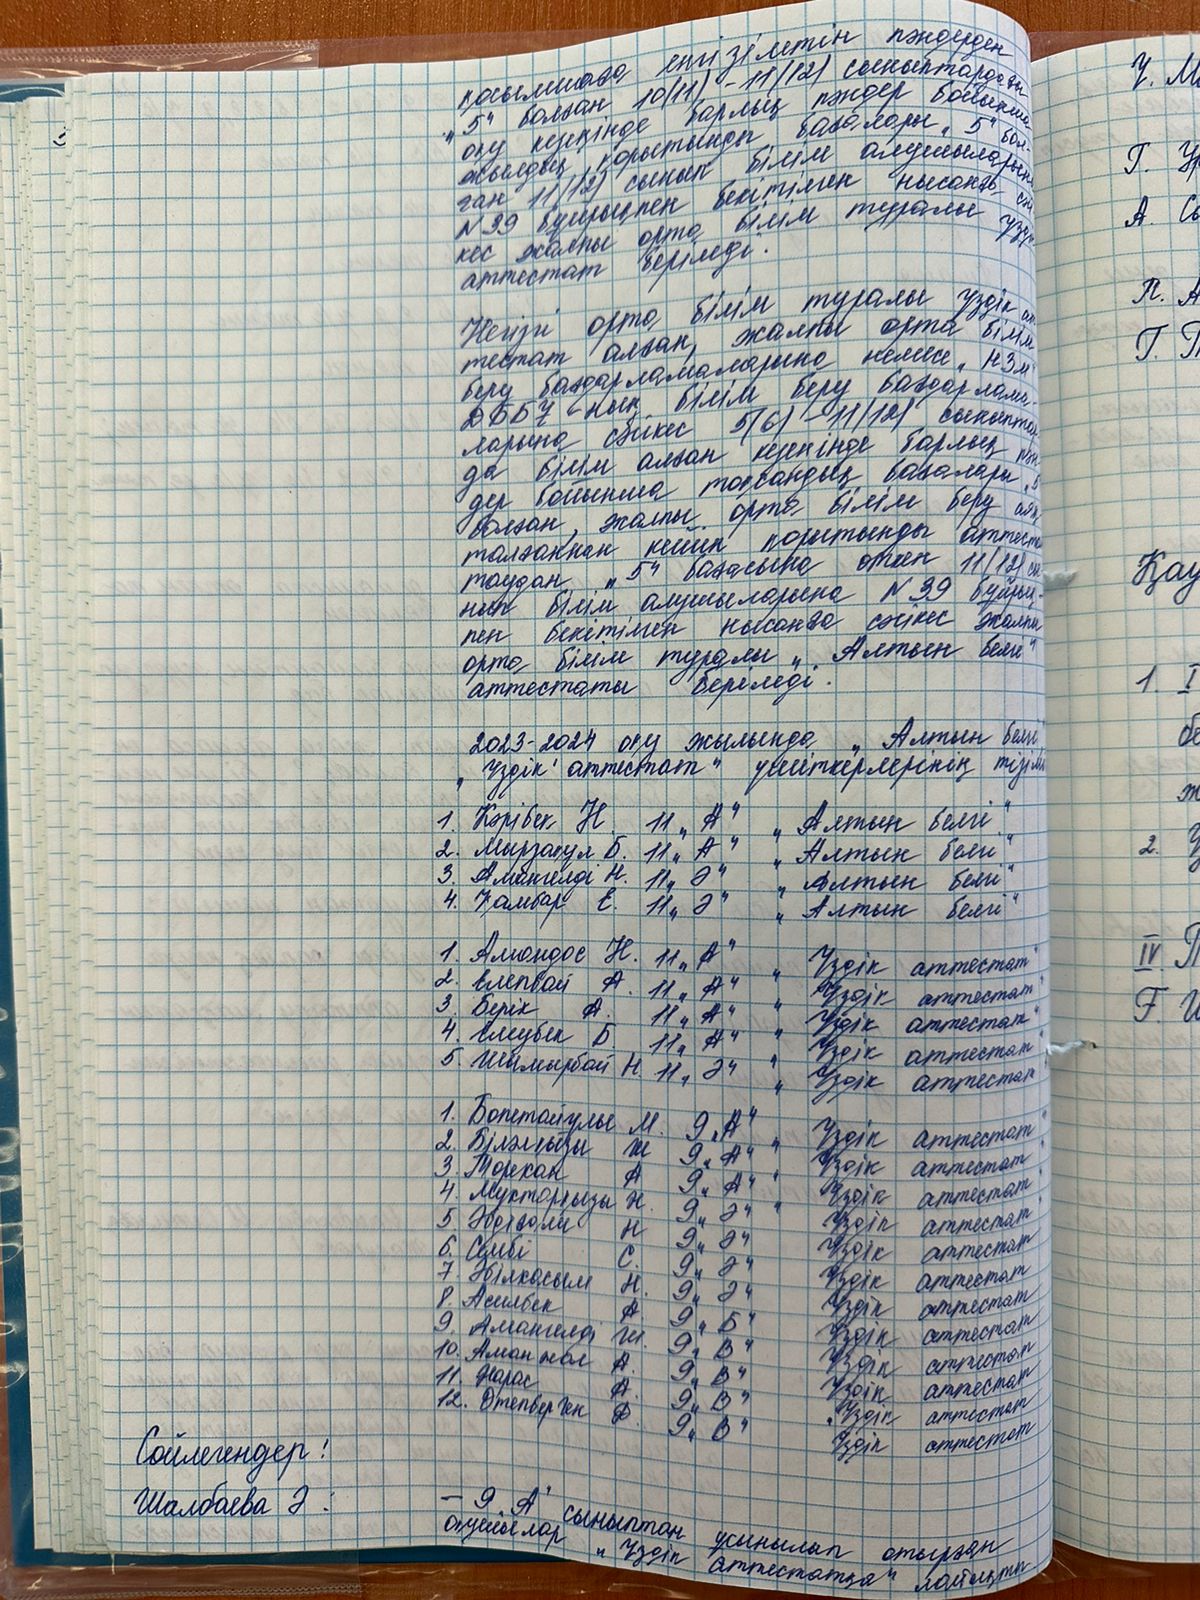 қосымшаға енгізілетін пәндерден
„5“ болған 10(11) - 11(12) сыныптардағы
оқу кезеңінде барлық пәндер бойынша
жылдық, қорытынды бағалары „5“ бол-
ған 11(12) сынып білім алушыларына
№39 бұйрықпен бекітілген нысанға сәй
кес жалпы орта білім туралы үздік
аттестат беріледі.
Негізгі орта білім туралы үздік ат
тестат алған, жалпы орта білім
беру бағдарламаларына немесе „НЗМ“
ДББҰ-ның білім беру бағдарлама-
ларына сәйкес 5(6) - 11(12) сыныптар
да білім алған кезеңінде барлық пән
дер бойынша тоқсандық бағалары „5
болған, жалпы орта білім беру аяқ
талғаннан кейін қорытынды аттеста
таудан „5“ бағасына өткен 11(12) сы
нып білім алушыларына №39 бұйрық-
пен бекітілген нысанға сәйкес жалпы
орта білім туралы „Алтын белгі“
аттестаты беріледі.
2023-2024 оқу жылында „Алтын белгі
„Үздік аттестат“ үміткерлерінің тізімі
1. Кәрібек Н. 11 „А“ „Алтын белгі“
2. Мырзақул Б. 11 „А“ „Алтын белгі“
3. Амангелді Н. 11 „Ә“ „Алтын белгі“
4. Қамбар Е. 11 „Ә“ „Алтын белгі“
1. Амандос Н. 11 „А“ „Үздік аттестат“
2. Елепбай А. 11 „А“ „Үздік аттестат“
3. Берік А. 11 „А“ „Үздік аттестат“
4. Елеубек Б 11 „А“ „Үздік аттестат“
5. Шымырбай Н. 11 „Ә“ „Үздік аттестат
1. Бопетайұлы М. 9 „А“ „Үздік аттестат
2. Біләлқызы Ж 9 „А“ „Үздік аттестат
3. Төрехан А 9 „А“ „Үздік аттестат
4. Мұхтарқызы Н. 9 „Ә“ Үздік аттестат
5. Әбдіғали Н 9 „Ә“ Үздік аттестат
6. Сембі С. 9 „Ә“ Үздік аттестат
7. Әбілқасым Н. 9 „Ә“ Үздік аттестат
8. Асилбек А 9 „Б“ Үздік аттестат
9. Амангелді Ж. 9 „В“ Үздік аттестат
10. Аманжол А. 9 „В“ Үздік аттестат
11. Арас А. 9 „В“ „Үздік аттестат
12. Өтепберген 9 „В“ Үздік аттестат
Сөйлегендер!
Шалбаева Ә: - 9 „А“ сыныптан ұсынылып отырған
оқушылар „Үздік аттестатқа“ лайықты
Қау
1. I
2.
IV